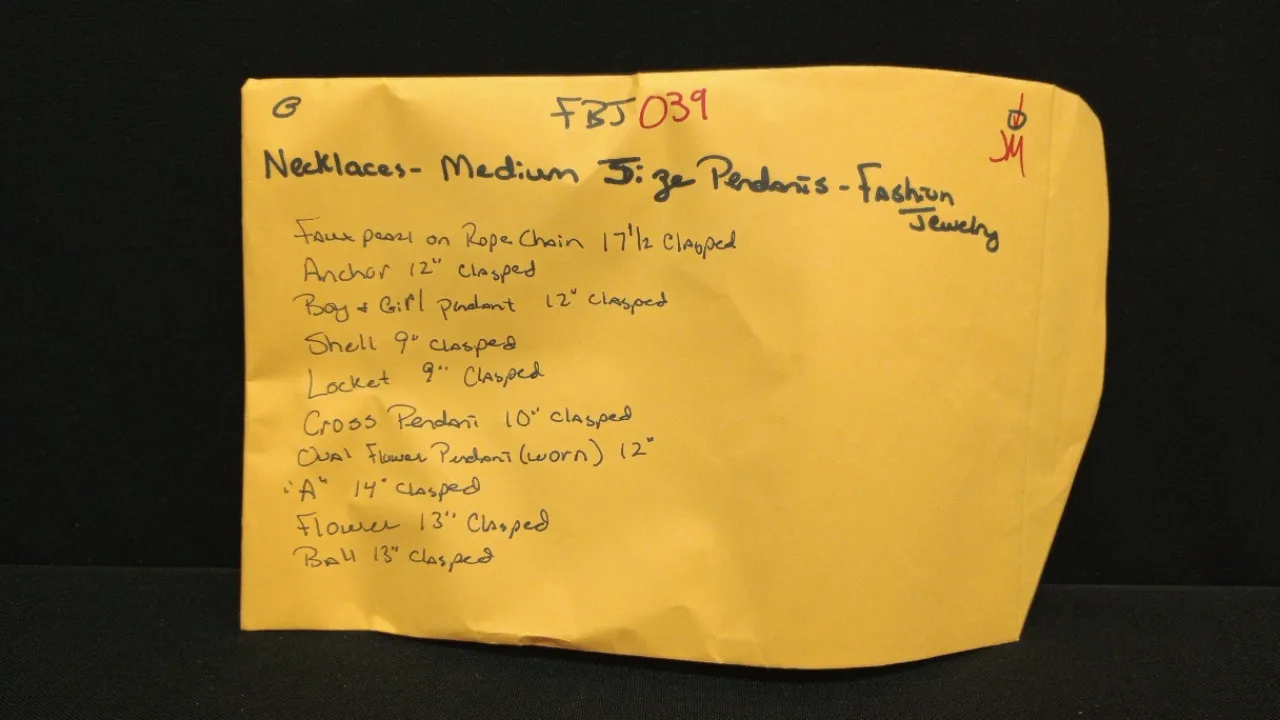 FBJ 039
JM
Necklaces - Medium Size Pendants - Fashion
Jewelry
Faux pearl on Rope Chain 17 1/2 Clasped
Anchor 12" clasped
Boy + Girl pendant 12" clasped
Shell 9" clasped
Locket 9" Clasped
Cross Pendant 10" clasped
Oval Flower Pendant (worn) 12"
"A" 14" clasped
Flower 13" Clasped
Ball 13" clasped